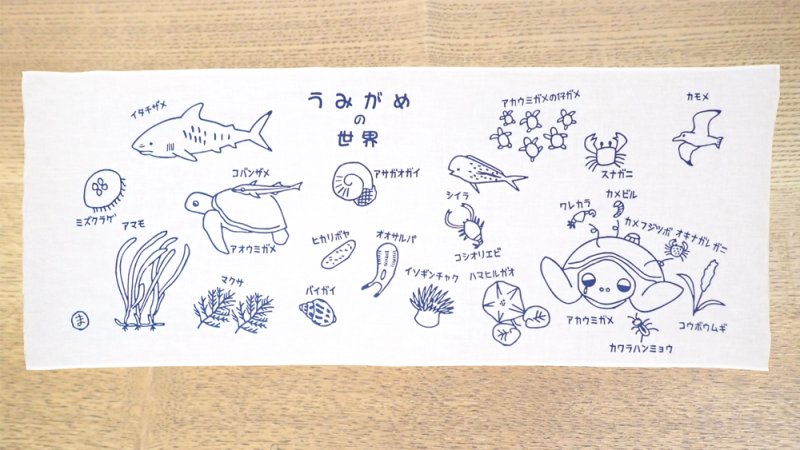 うみがめ
の
世界
イタチザメ
コバンザメ
アサガオガイ
アカウミガメの仔ガメ
カモメ
スナガニ
シイラ
ミズクラゲ
アマモ
アオウミガメ
ヒカリボヤ
オオサルパ
コシオリエビ
ワレカラ
カメビル
カメフジツボ
オキナガレガニ
マクサ
バイガイ
イソギンチャク
ハマヒルガオ
アカウミガメ
コウボウムギ
カワラハンミョウ
ま